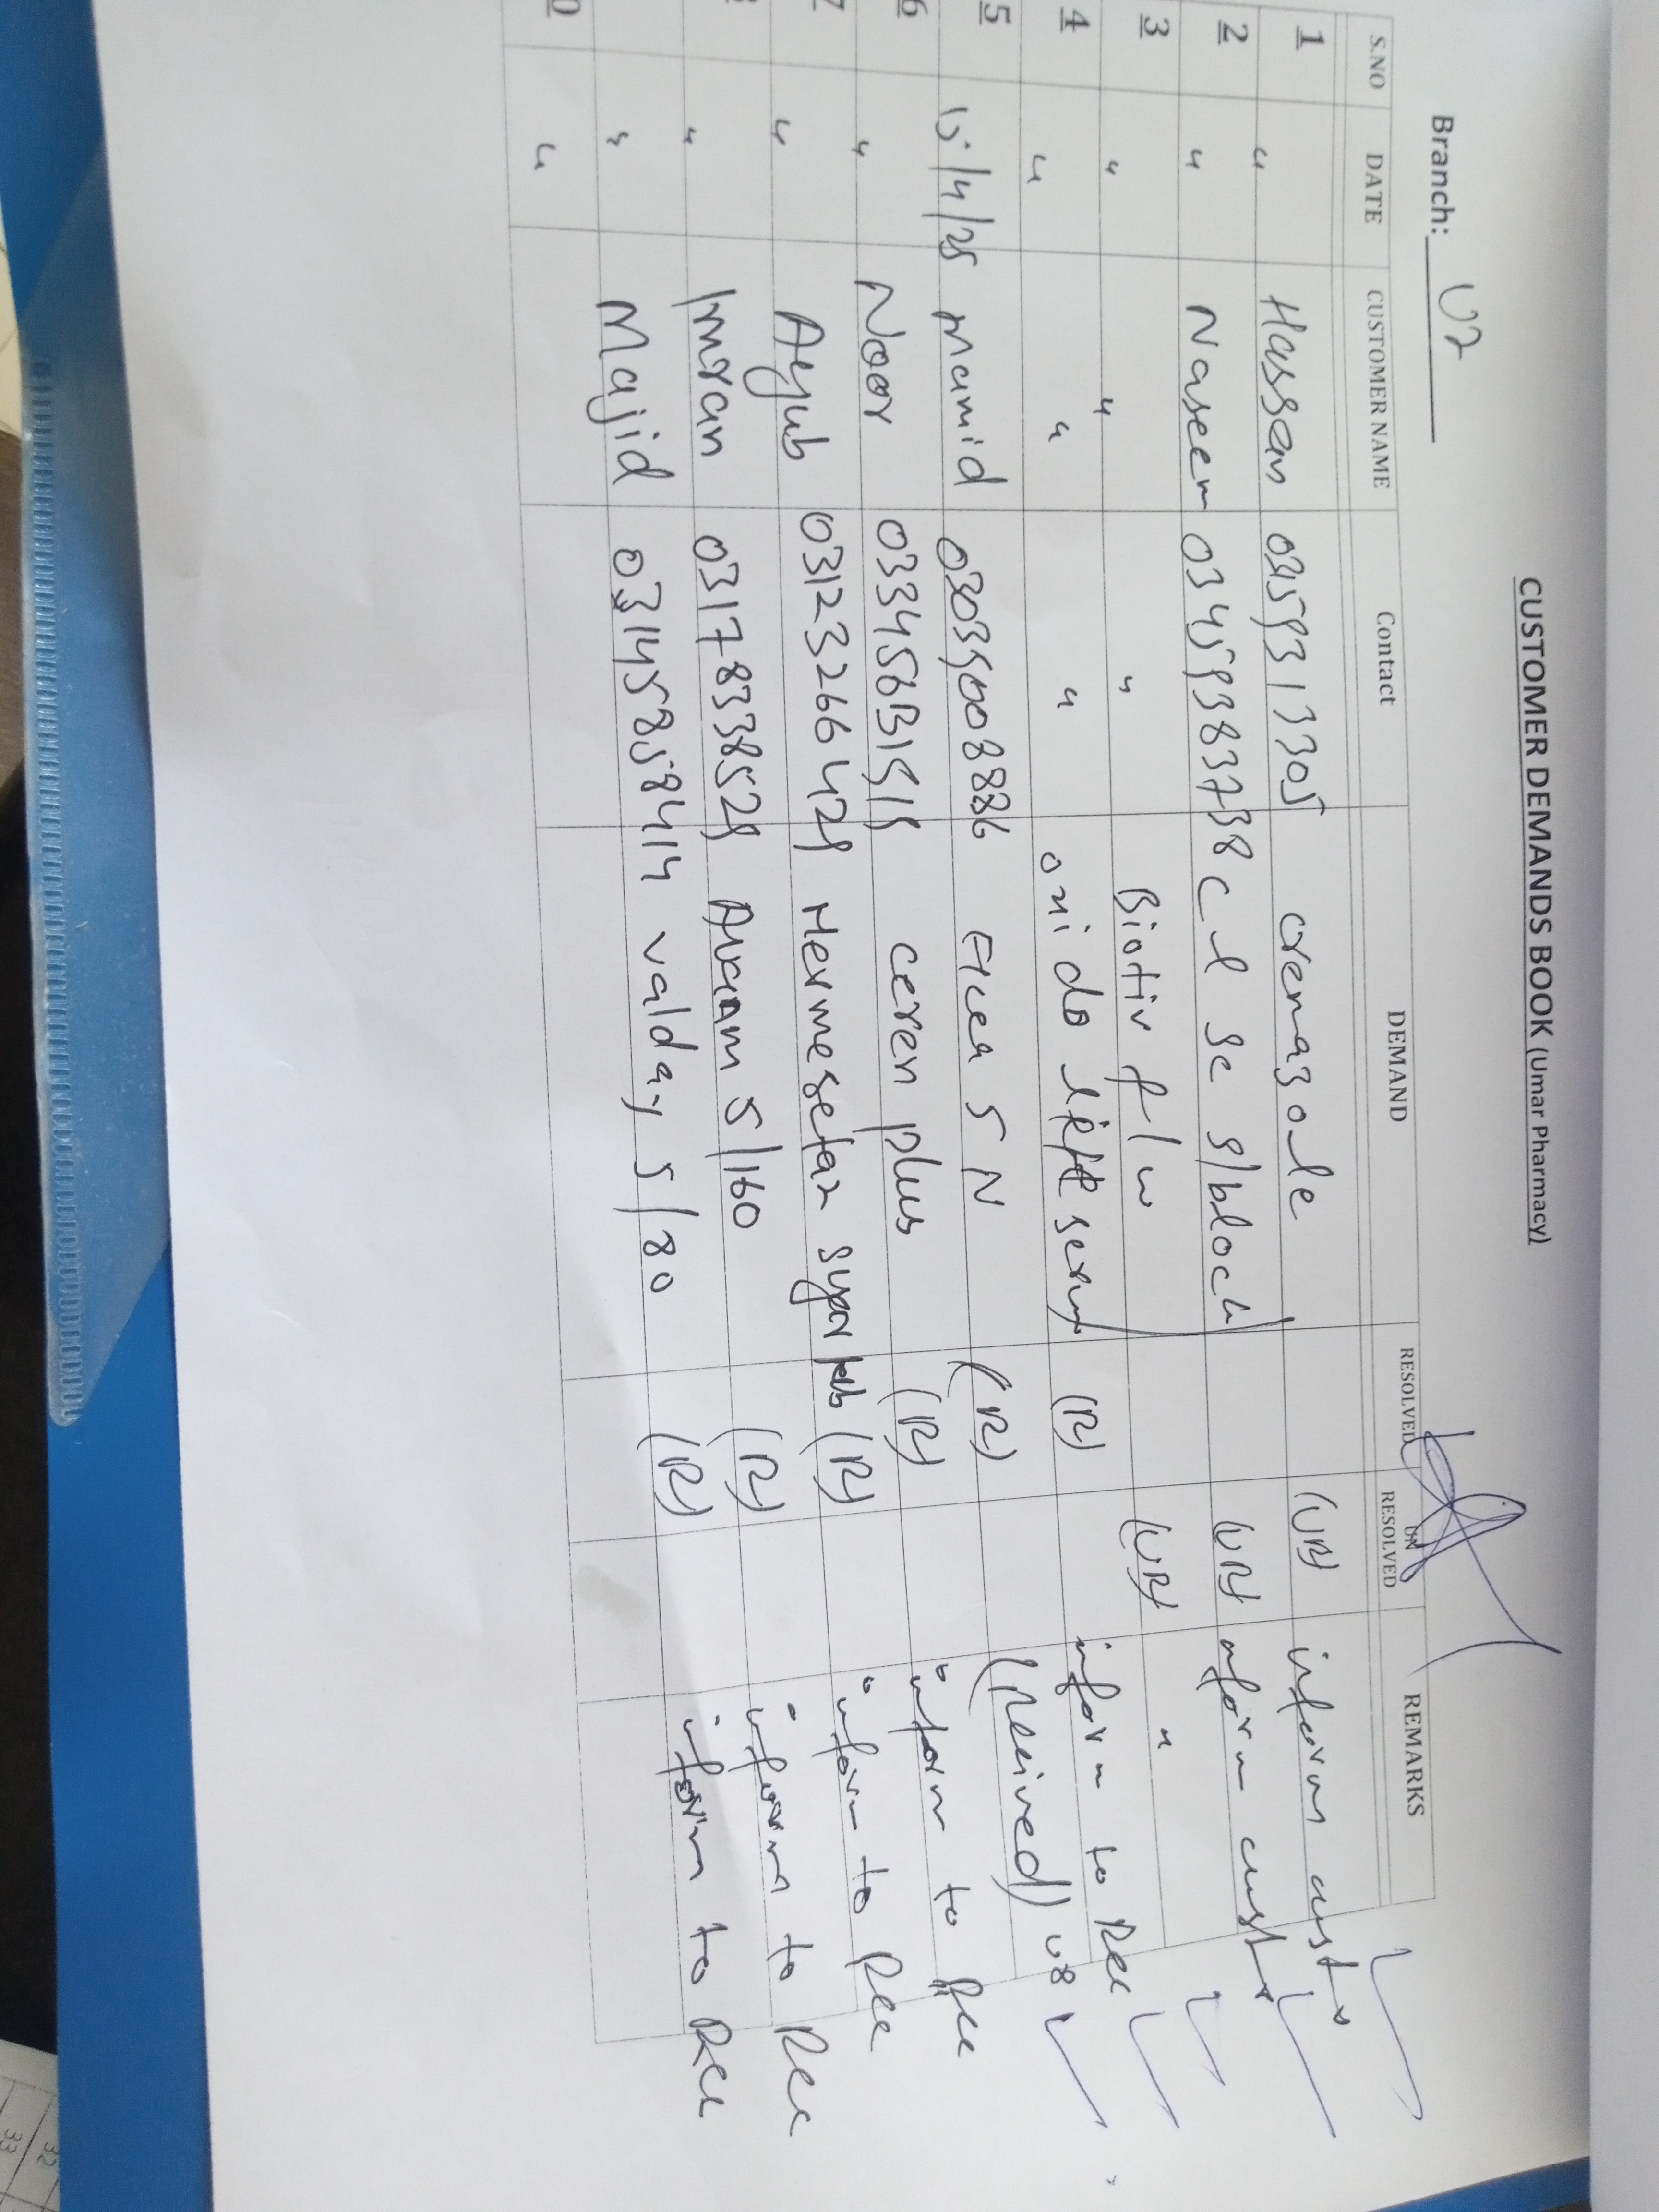 CUSTOMER DEMANDS BOOK (Umar Pharmacy)
Branch: U2
S.NO DATE CUSTOMER NAME Contact DEMAND RESOLVED UN RESOLVED REMARKS
1 " Hassan cremazole (UR) inform
2 " Naseem 03459383738 c l se s/block (UR) inform
3 " " " Biotiv f/w (UR) "
4 " " " oxi do lift serum (R) inform to Rec
5 15/4/25 Hamid 5 N (R) (Received) U8
6 " Noor ceren plus (R) inform to Rec
7 " Ayub 03123266429 Hermesetas tab (R) inform to Rec
" Imran 03178338529 5/160 (R) inform to Rec
" Majid 03145858414 valday 5/80 (R) inform to Rec
0 "
32
33